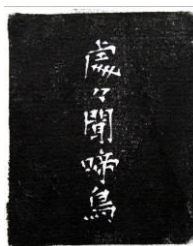 處々聞啼鳥